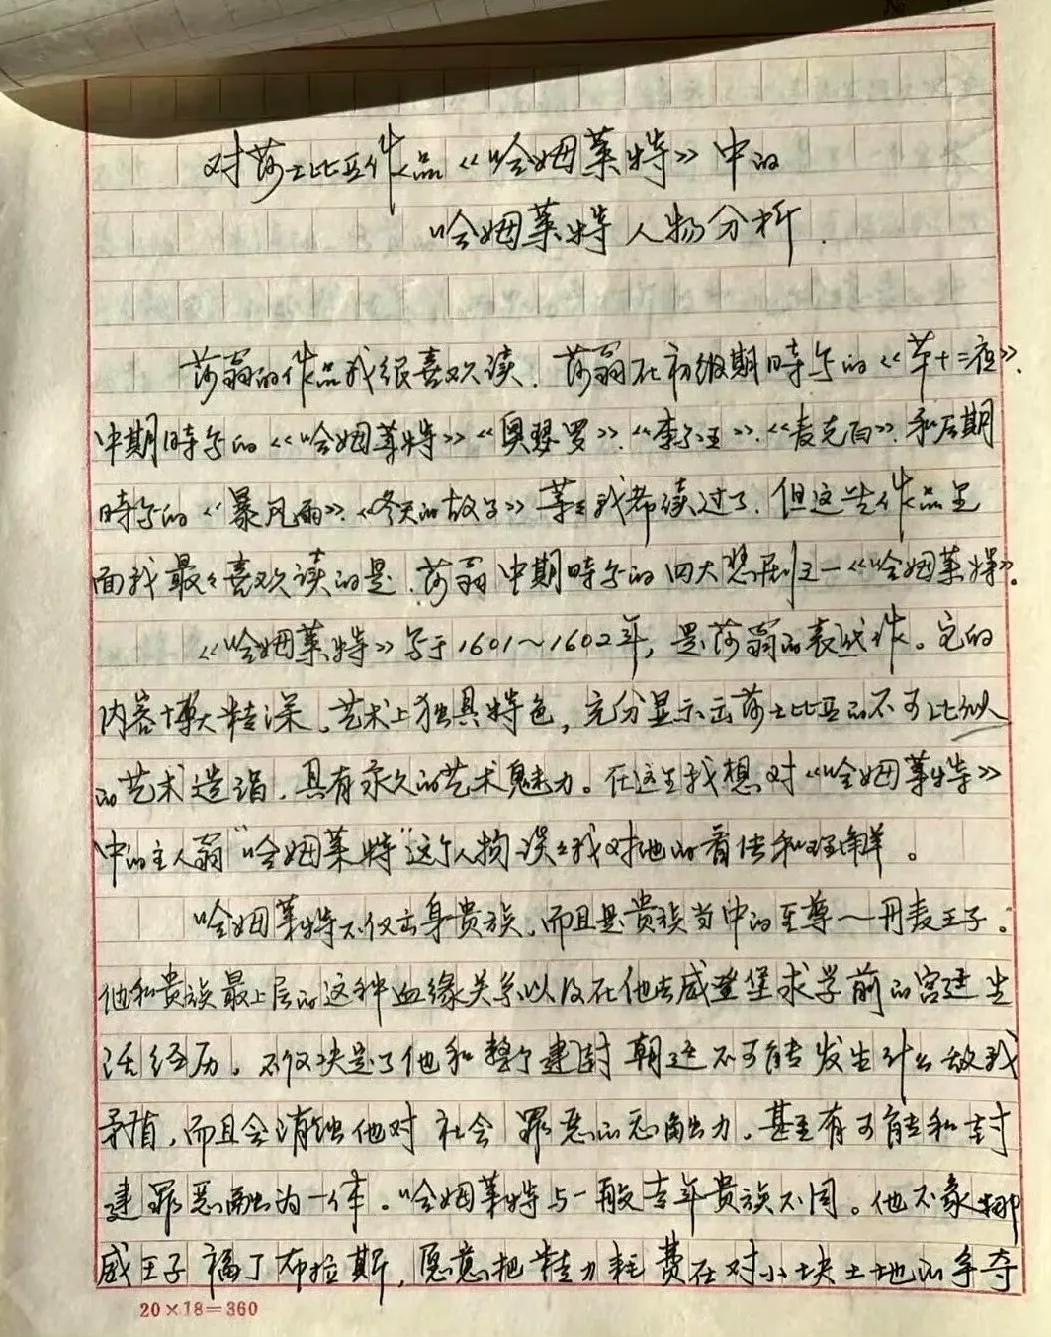 对莎士比亚作品《哈姆莱特》中的
哈姆莱特人物分析.
莎翁的作品我很喜欢读.莎翁在初级期时写的《第十二夜》.
中期时写的《哈姆莱特》《奥瑟罗》.《李尔王》.《麦克白》.和后期
时写的《暴风雨》.《冬天的故事》等等我都读过了.但这些作品里
面我最最喜欢读的是.莎翁中期时写的四大悲剧之一《哈姆莱特》。
《哈姆莱特》写于1601～1602年,是莎翁的表代作。它的
内容博大精深、艺术上独具特色,充分显示出莎士比亚的不可比拟
的艺术造诣.具有永久的艺术魅力。在这里我想对《哈姆莱特》
中的主人翁“哈姆莱特”这个人物谈谈我对他的看法和理解。
哈姆莱特不仅出身贵族.而且是贵族当中的至尊—丹麦王子。
他和贵族最上层的这种血缘关系以及在他去威登堡求学前的宫廷生
活经历。不仅决定了他和整个建封朝廷不可能发生什么敌我
矛盾,而且会消蚀他对社会罪恶的 力.甚至有可能和封
建罪恶融为一体。哈姆莱特与一般青年贵族不同。他不象挪
威王子福丁布拉斯,愿意把精力耗费在对小块土地的争夺
20×18=360